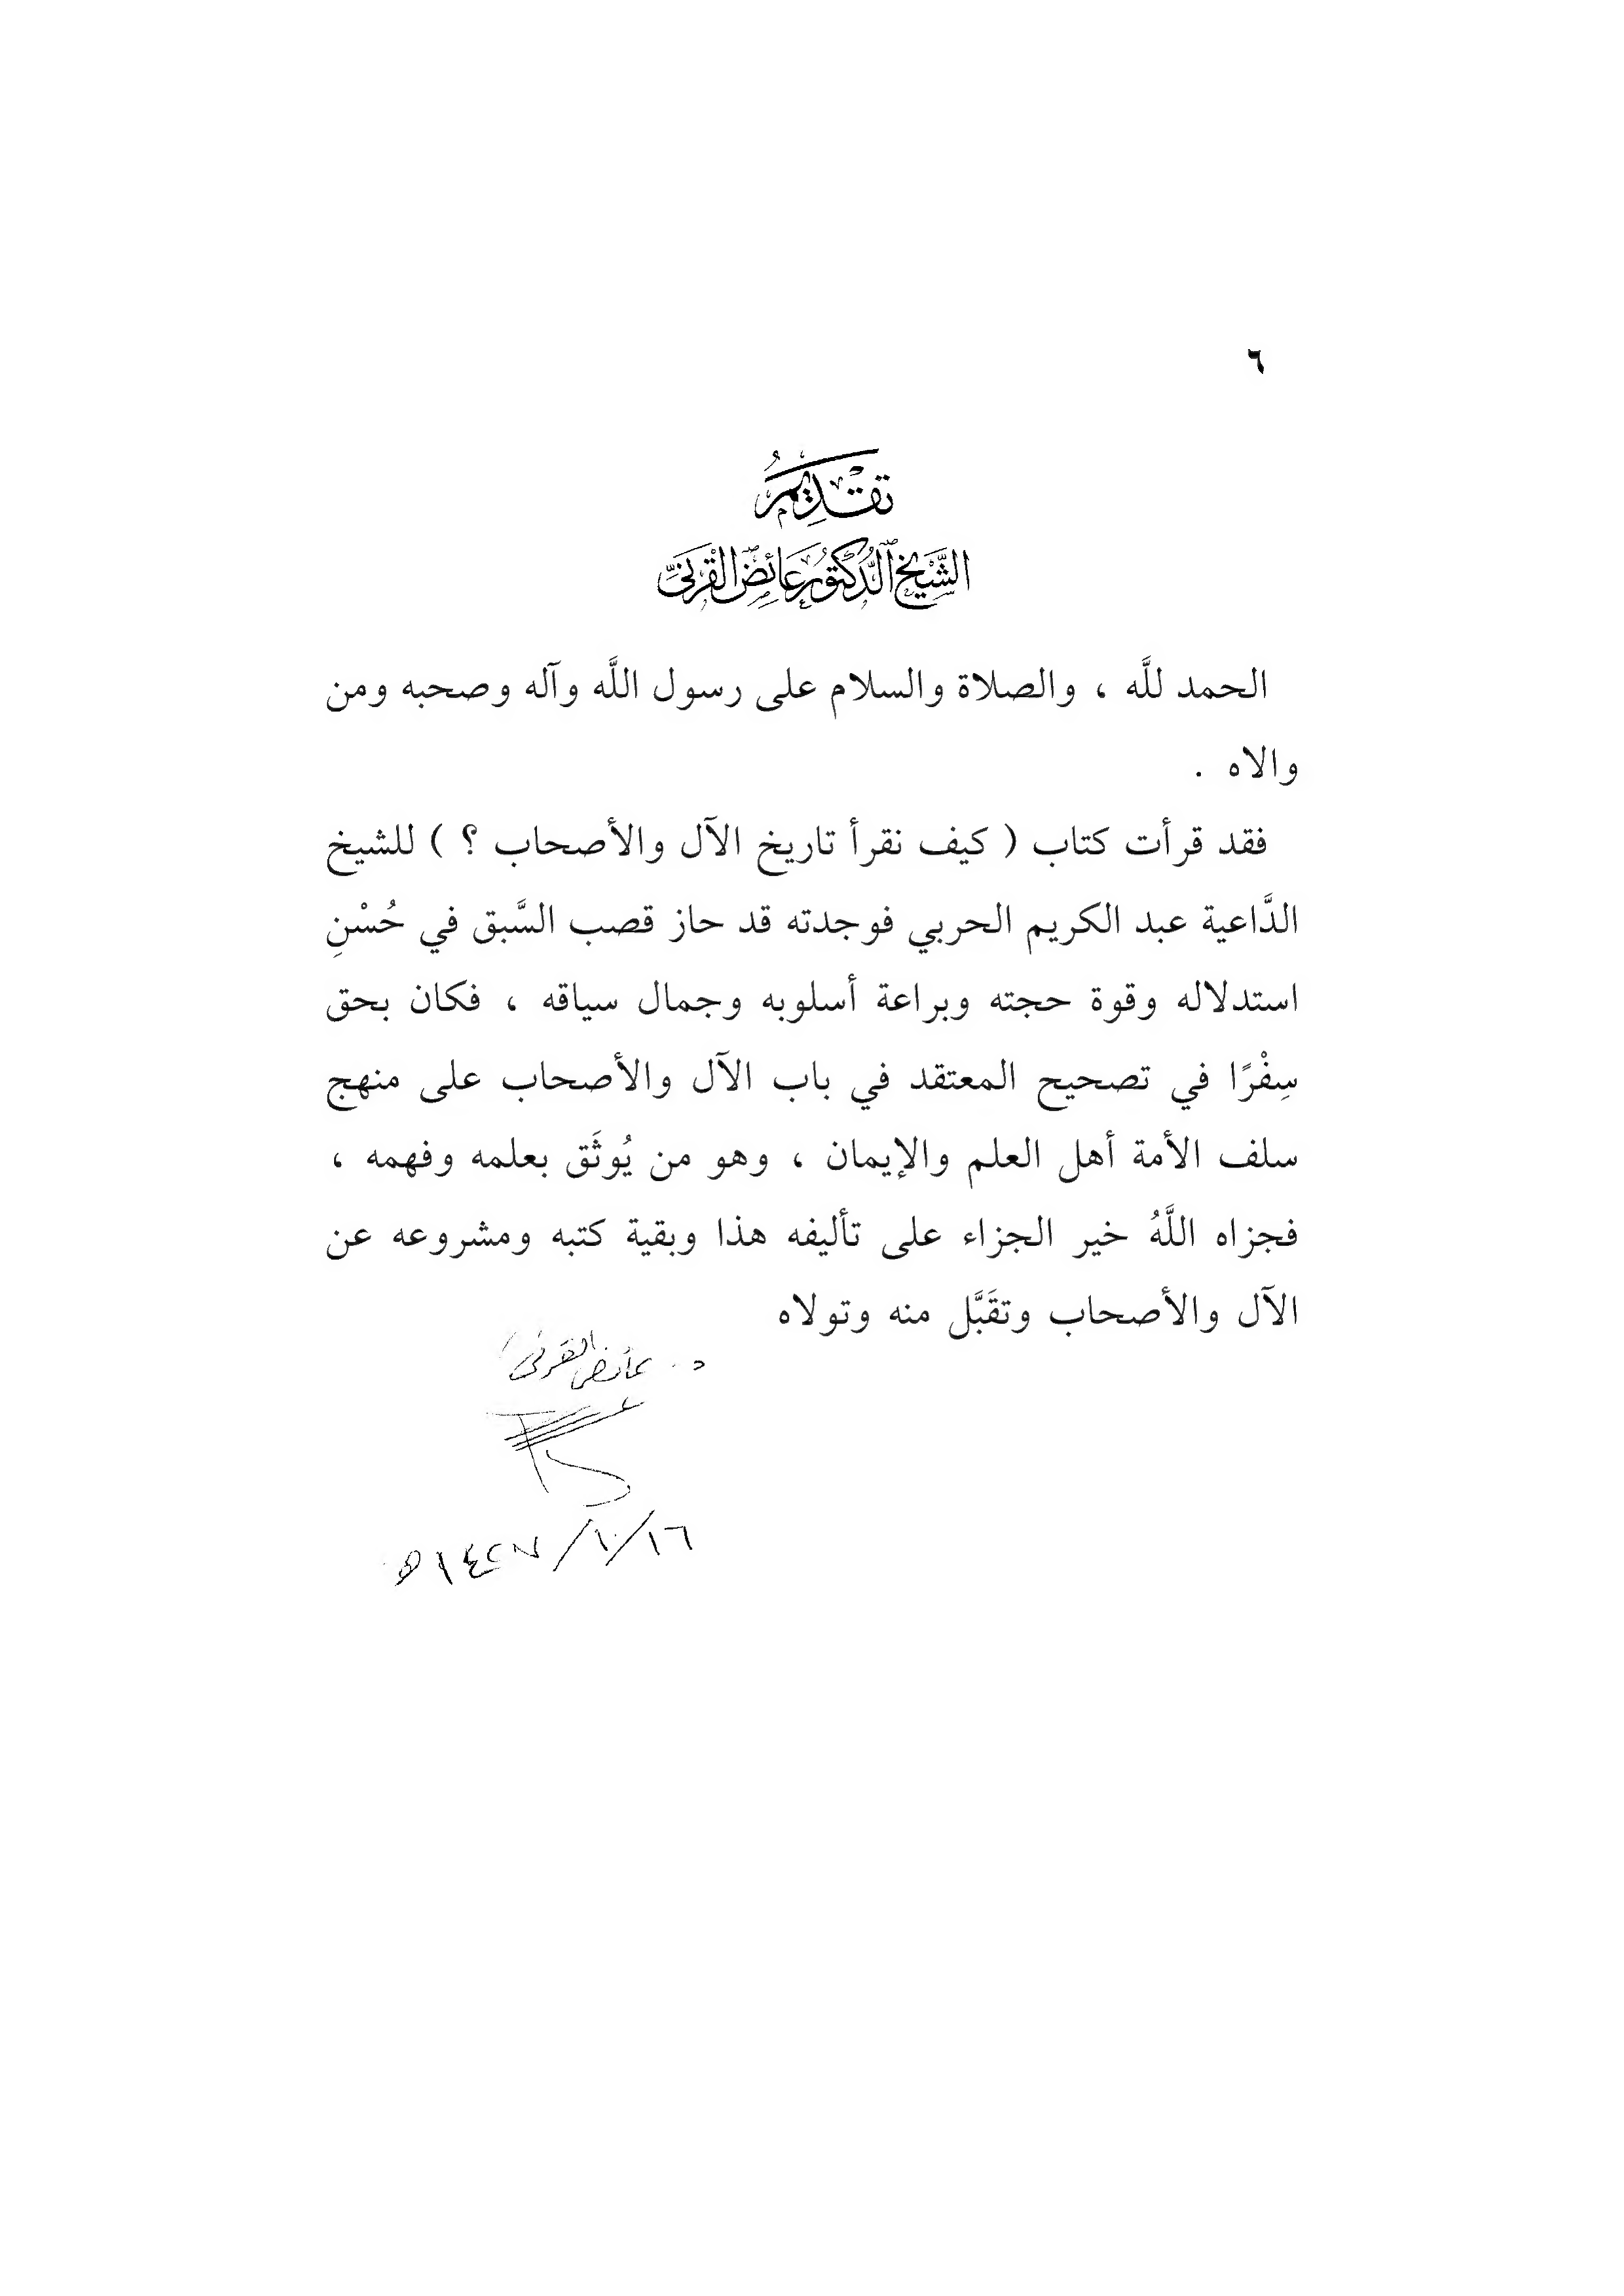 ٦
تقديم
الشيخ الدكتور عائض القرني
الحمد للَّه ، والصلاة والسلام على رسول اللَّه وآله وصحبه ومن
والاه .
فقد قرأت كتاب ( كيف نقرأ تاريخ الآل والأصحاب ؟ ) للشيخ
الدَّاعية عبد الكريم الحربي فوجدته قد حاز قصب السَّبق في حُسْنِ
استدلاله وقوة حجته وبراعة أسلوبه وجمال سياقه ، فكان بحق
سِفْرًا في تصحيح المعتقد في باب الآل والأصحاب على منهج
سلف الأمة أهل العلم والإيمان ، وهو من يُوثَق بعلمه وفهمه ،
فجزاه اللَّهُ خير الجزاء على تأليفه هذا وبقية كتبه ومشروعه عن
الآل والأصحاب وتقَبَّل منه وتولاه
د. عائض القرني
١٦/١٠/١٤٢٧ه